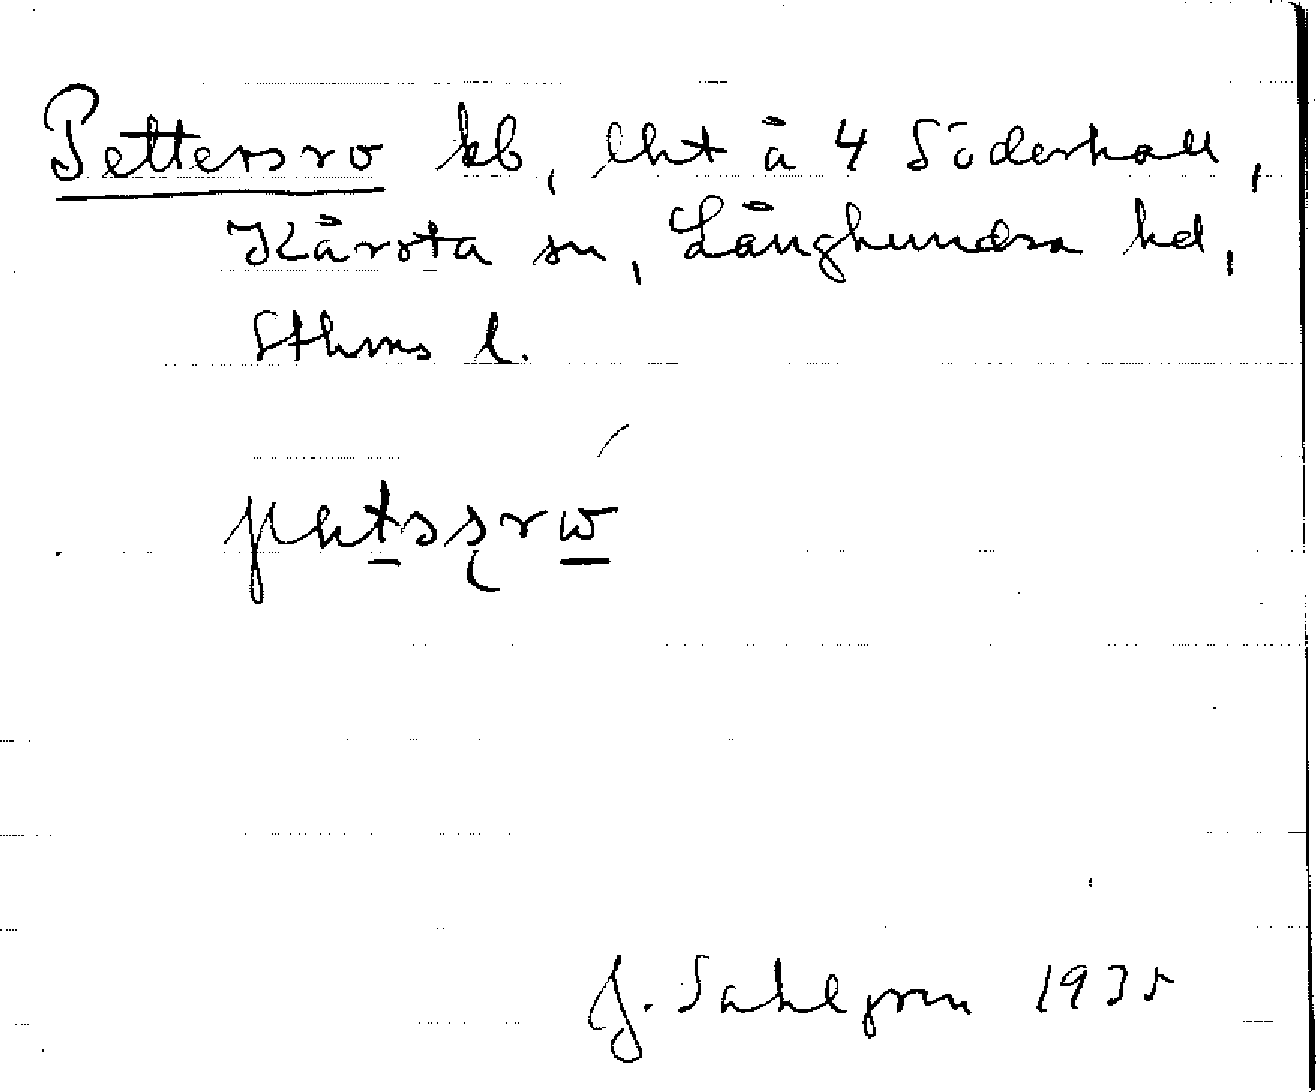 Pettersro kb, lht å 4 Söderhall,
Kårsta sn, Långhundra hd,
Sthms l.
J. Sahlgren 1935